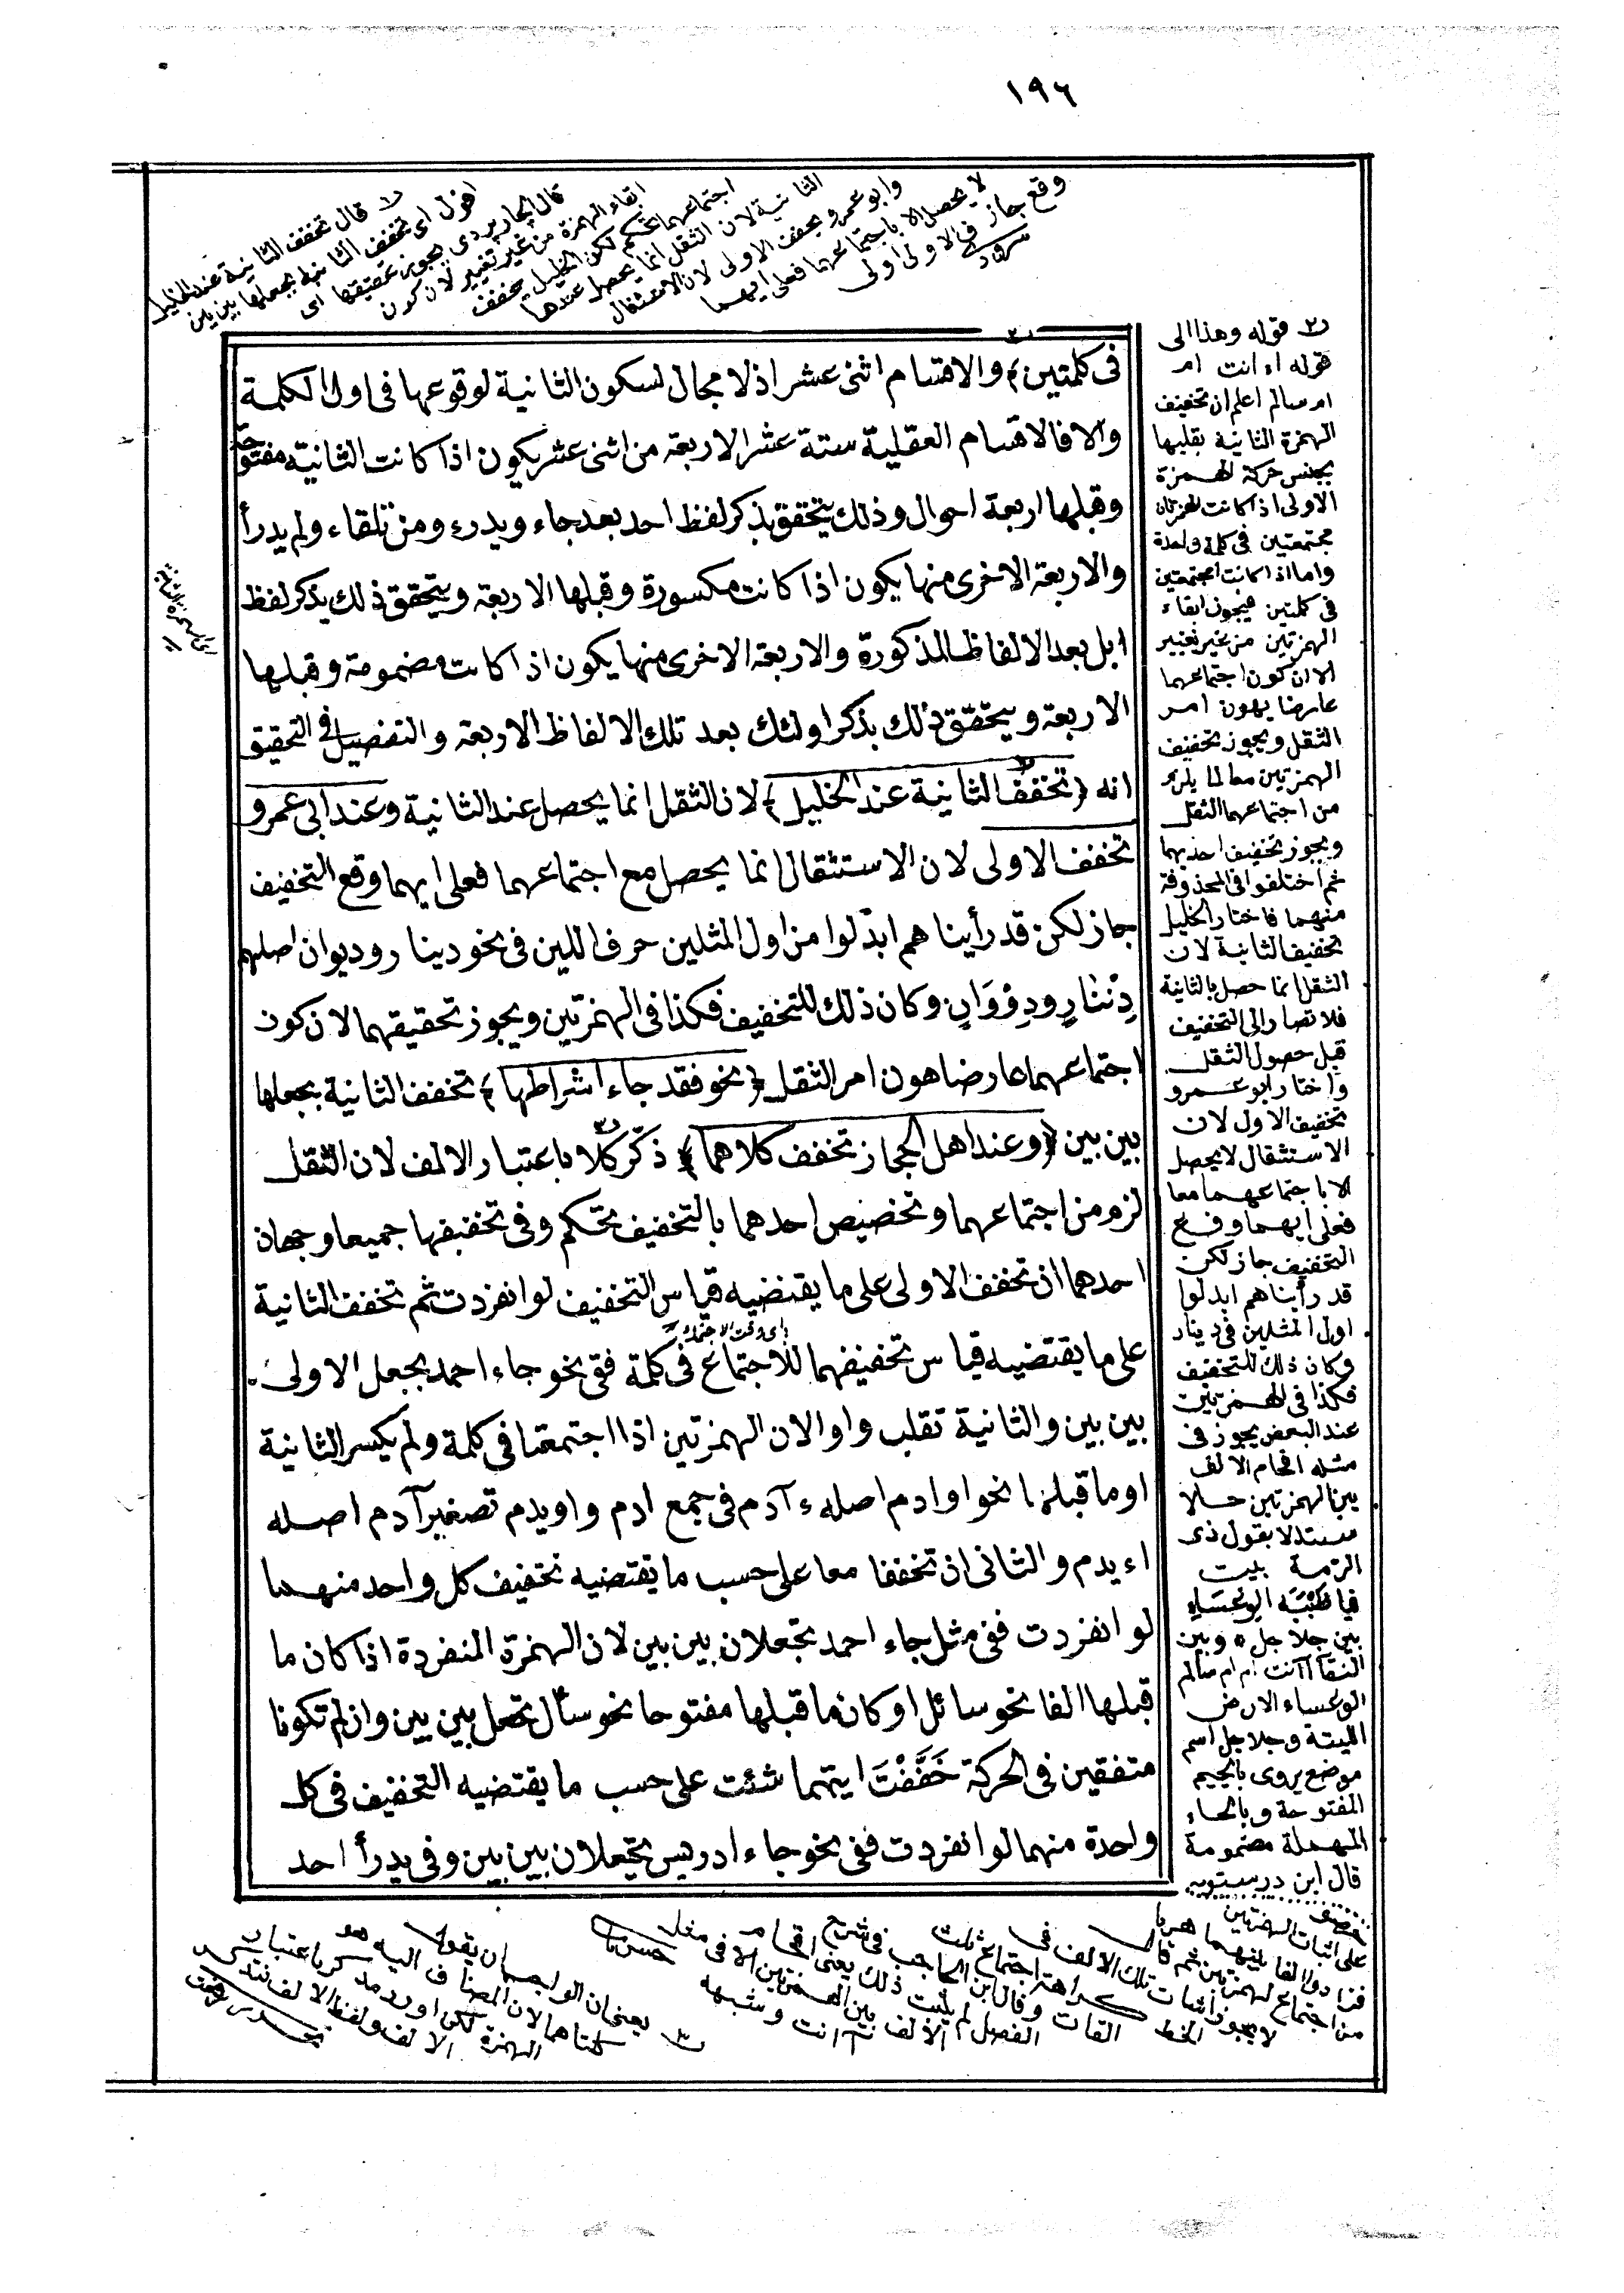 ١٩٦
في كلمتين﴾ والاقسام اثنى عشر اذ لا مجال لسكون الثانية لوقوعها فى اول الكلمة
والا فالاقسام العقلية ستة عشر الاربعة من اثنى عشر يكون اذا كانت الثانية مفتوحة
وقبلها اربعة احوال وذلك يتحقق بذكر لفظ احد بعد جاء ويدرء ومن تلقاء ولم يدرأ
والاربعة الاخرى منها يكون اذا كانت مكسورة وقبلها الاربعة ويتحقق ذلك بذكر لفظ
ابل بعد الالفاظ المذكورة والاربعة الاخرى منها يكون اذا كانت مضمومة وقبلها
الاربعة ويتحقق ذلك بذكر اولئك بعد تلك الالفاظ الاربعة والتفصيل فى التحقيق
انه ﴿تخفف الثانية عند الخليل﴾ لان الثقل انما يحصل عند الثانية وعند ابى عمرو
تخفف الاولى لان الاستثقال انما يحصل مع اجتماعهما فعلى ايهما وقع التخفيف
جاز لكن قد رأيناهم ابدلوا من اول المثلين حرف اللين فى نحو دينار وديوان اصلهم
دِنْنَارٍ ودِوْوَانٍ وكان ذلك للتخفيف فكذا فى الهمزتين ويجوز تحقيقهما لان كون
اجتماعهما عارضا هون امر الثقل ﴿نحو فقد جاء اشراطها﴾ تخفف الثانية بجعلها
بين بين ﴿وعند اهل الحجاز تخفف كلاهما﴾ ذكّر كلا باعتبار الالف لان الثقل
لزم من اجتماعهما وتخصيص احدهما بالتخفيف تحكم وفى تخفيفها جميعا وجهان
احدهما ان تخفف الاولى على ما يقتضيه قياس التخفيف لو انفردت ثم تخفف الثانية
على ما يقتضيه قياس تخفيفهما للاجتماع فى كلمة ففى نحو جاء احمد يجعل الاولى
بين بين والثانية تقلب واوا لان الهمزتين اذا اجتمعتا فى كلمة ولم يكسر الثانية
او ما قبلها نحو اوادم اصله ءآدم فى جمع ادم واويدم تصغير آدم اصله
اءيدم والثانى ان تخففا معا على حسب ما يقتضيه تخفيف كل واحد منهما
لو انفردت ففى مثل جاء احمد تجعلان بين بين لان الهمزة المنفردة اذا كان ما
قبلها الفا نحو سائل او كان ما قبلها مفتوحا نحو سأل تجعل بين بين وان لم تكونا
متفقين فى الحركة خَفَّفْتَ ايتهما شئت على حسب ما يقتضيه التخفيف فى كل
واحدة منهما لو انفردت ففى نحو جاء ادريس تجعلان بين بين وفى يدرأ احد
قوله وهذا الى
قوله اء انت ام
ام سالم اعلم ان تخفيف
الهمزة الثانية بقلبها
بجنس حركة الهمزة
الاولى اذا كانت الهمزتان
مجتمعتين فى كلمة واحدة
واما اذا كانت مجتمعتين
فى كلمتين فيجوز ابقاء
الهمزتين من غير تغيير
لان كون اجتماعهما
عارضا يهون امر
الثقل ويجوز تخفيف
الهمزتين معا لما يلزم
من اجتماعهما الثقل
ويجوز تخفيف احديهما
ثم اختلفوا فى المحذوفة
منهما فاختار الخليل
تخفيف الثانية لان
الثقل انما حصل بالثانية
فلا تصار الى التخفيف
قبل حصول الثقل
واختار ابو عمرو
تخفيف الاول لان
الاستثقال لا يحصل
الا باجتماعهما معا
فعلى ايهما وقع
التخفيف جاز لكن
قد رأيناهم ابدلوا
اول المثلين فى دينار
وكان ذلك للتخفيف
فكذا فى الهمزتين
عند البعض يجوز فى
مثله اقحام الالف
بين الهمزتين
مستدلا بقول ذى
الرمة بيت
فيا ظَبْيَة الوعساء
بين جلاجل وبين
النقا اآنت ام ام سالم
الوعساء الارض
اللينة وجلاجل اسم
موضع يروى بالجيم
المفتوحة وبالحاء
المهملة مضمومة
قال ابن درستويه
قال تخفف الثانية عند الخليل
اقول اى تخفف الثانية بجعلها بين بين
قال الجاربردى يجوز تحقيقها اى
ابقاء الهمزة من غير تغيير لان كون
الثانية لان الثقل انما يحصل عندها
وابو عمرو يخفف الاولى لان الاستثقال
لا يحصل الا باجتماعهما فعلى ايهما
وقع جاز فى الاولى اولى